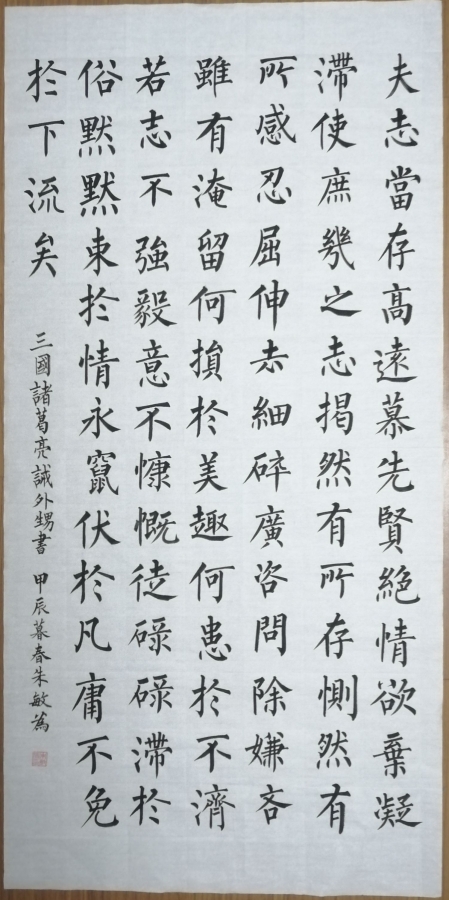 夫志當存高遠慕先賢絕情欲棄凝
滯使庶幾之志揭然有所存惻然有
所感忍屈伸去細碎廣咨問除嫌吝
雖有淹留何損於美趣何患於不濟
若志不強毅意不慷慨徒碌碌滯於
俗默默束於情永竄伏於凡庸不免
於下流矣
三國諸葛亮誡外甥書 甲辰暮春朱敏為